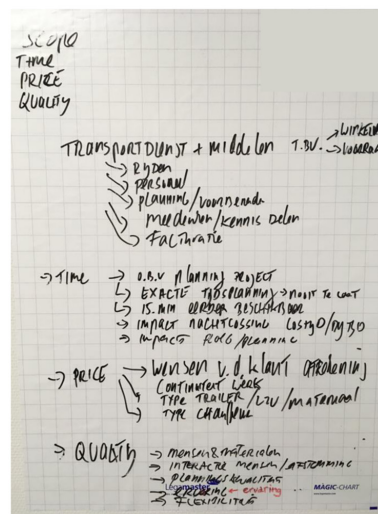 SCOPE
TIME
PRICE
QUALITY
TRANSPORTDIENST + middelen T.B.V.
→ WINKEL
→ VOORRAAD
→ RYDEN
→ personeel
→ planning/
meedenken/kennis Delen
→ Facturatie
→ TIME → O.B.V planning project
→ EXACTE TYDSPLANNING → nooit te laat
→ 15.MIN EERDER BESCHIKBAAR
→ IMPACT NACHTLOSSING
→ impact /planning
→ PRICE → wensen v.d. klant
CONTINUITEIT werk
→ TYPE TRAILER/LZV/materiaal
→ TYPE
→ QUALITY → mensen & materialen
→ INTERACTIE mensen/AFSTEMMING
→ PLANNINGSKWALITEIT
→ ← ervaring
→ FLEXIBILITEIT
Legamaster
MAGIC-CHART